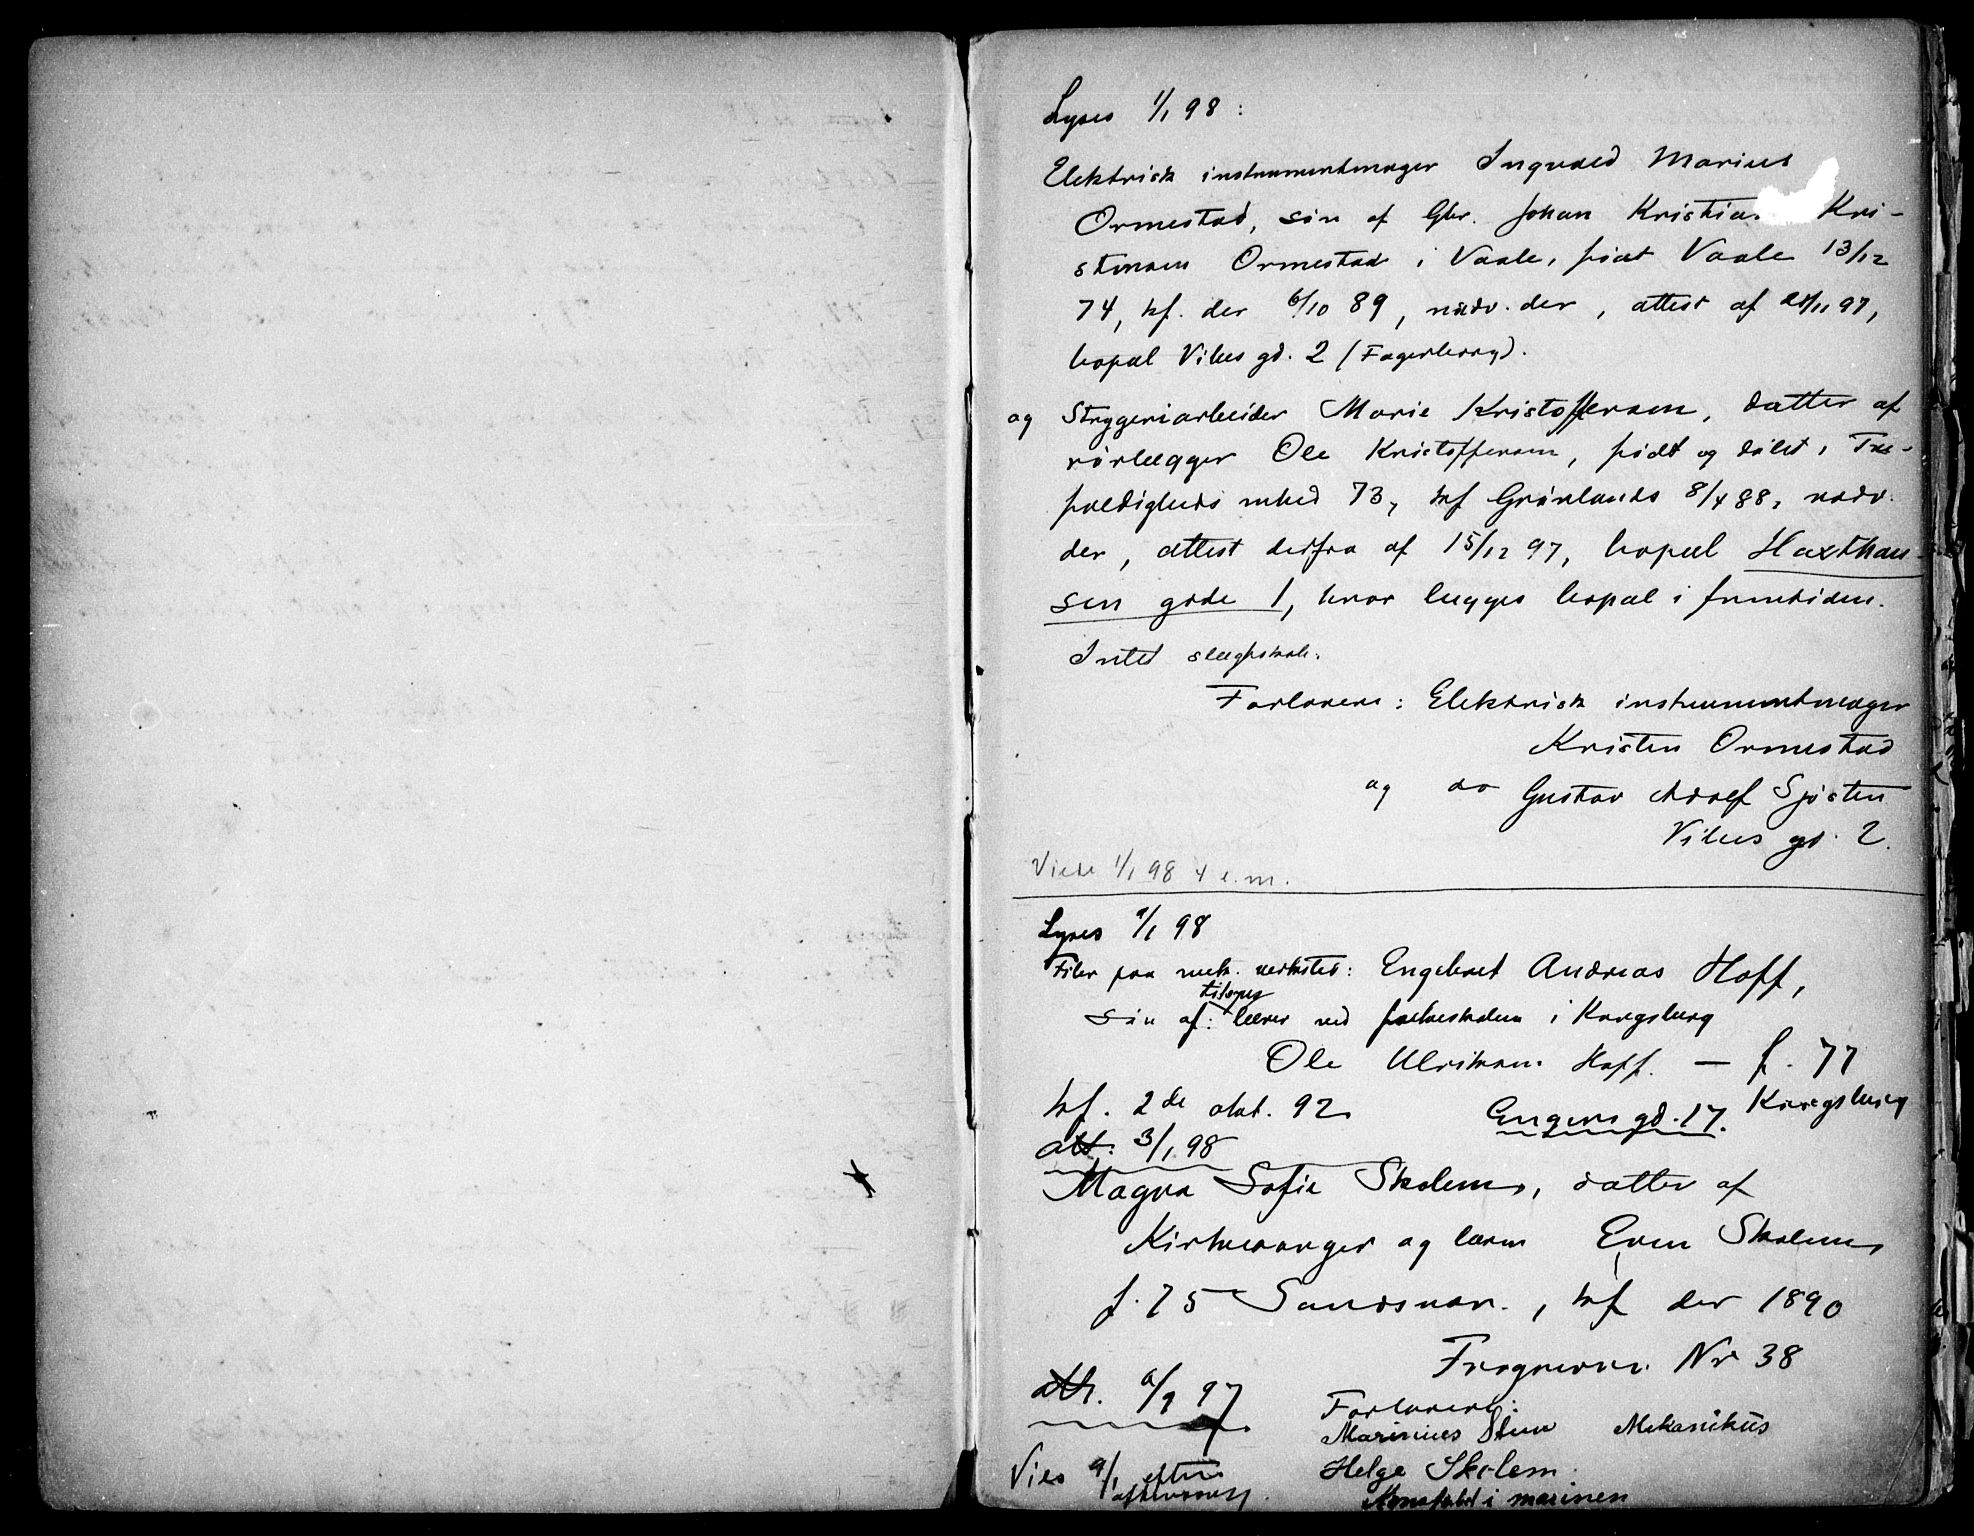 Lyses 1/1 98:
Elektrisk instrumentmager Ingvald Marius
Ormestad, søn af Gbr. Johan Kristian Kri-
stensen Ormestad i Vaale, født Vaale 13/12
74, kf. der 6/10 89, nadv. der, attest af 11 97,
bopæl Vibes gd. 2 (Fagerborg).
og Strygeriarbeider Marie Kristoffersen, datter af
rørlægger Ole Kristoffersen, født og døbt i Tre-
foldigheds mhed 73, kf Grønlands 8/4 88, nadv.
der, attest derfra af 15/12 97, bopæl Haxthau-
sen gade 1, hvor lægges bopæl i fremtiden.
Intet slægtskab.
Forlovere: Elektrisk instrumentmager
Kristen Ormestad
og do Gustav Adolf Sjösten
Vibes gd. 2.
Viede 1/1 98 4 e.m.
Lyses 9/1 98
Filer paa mek. verksted: Engebret Andreas Hoff,
søn af: lærer ved folkeskolen i Kongsberg
Ole Ulriksen Hoff. — f. 77
kf. 2de okt. 92 Kongsberg
Engens gd. 17.
att. 3/1 98
Magna Sofie Skolem, datter af
Kirkesanger og lærer Even Skolem
f. 75 Sandsvær., kf der 1890
Frognerv. Nr 38
att. 97
Forlovere:
Marinius Steen Mekanikus
Helge Skolem.
Konstabel i marinen
Vies 9/1 efter